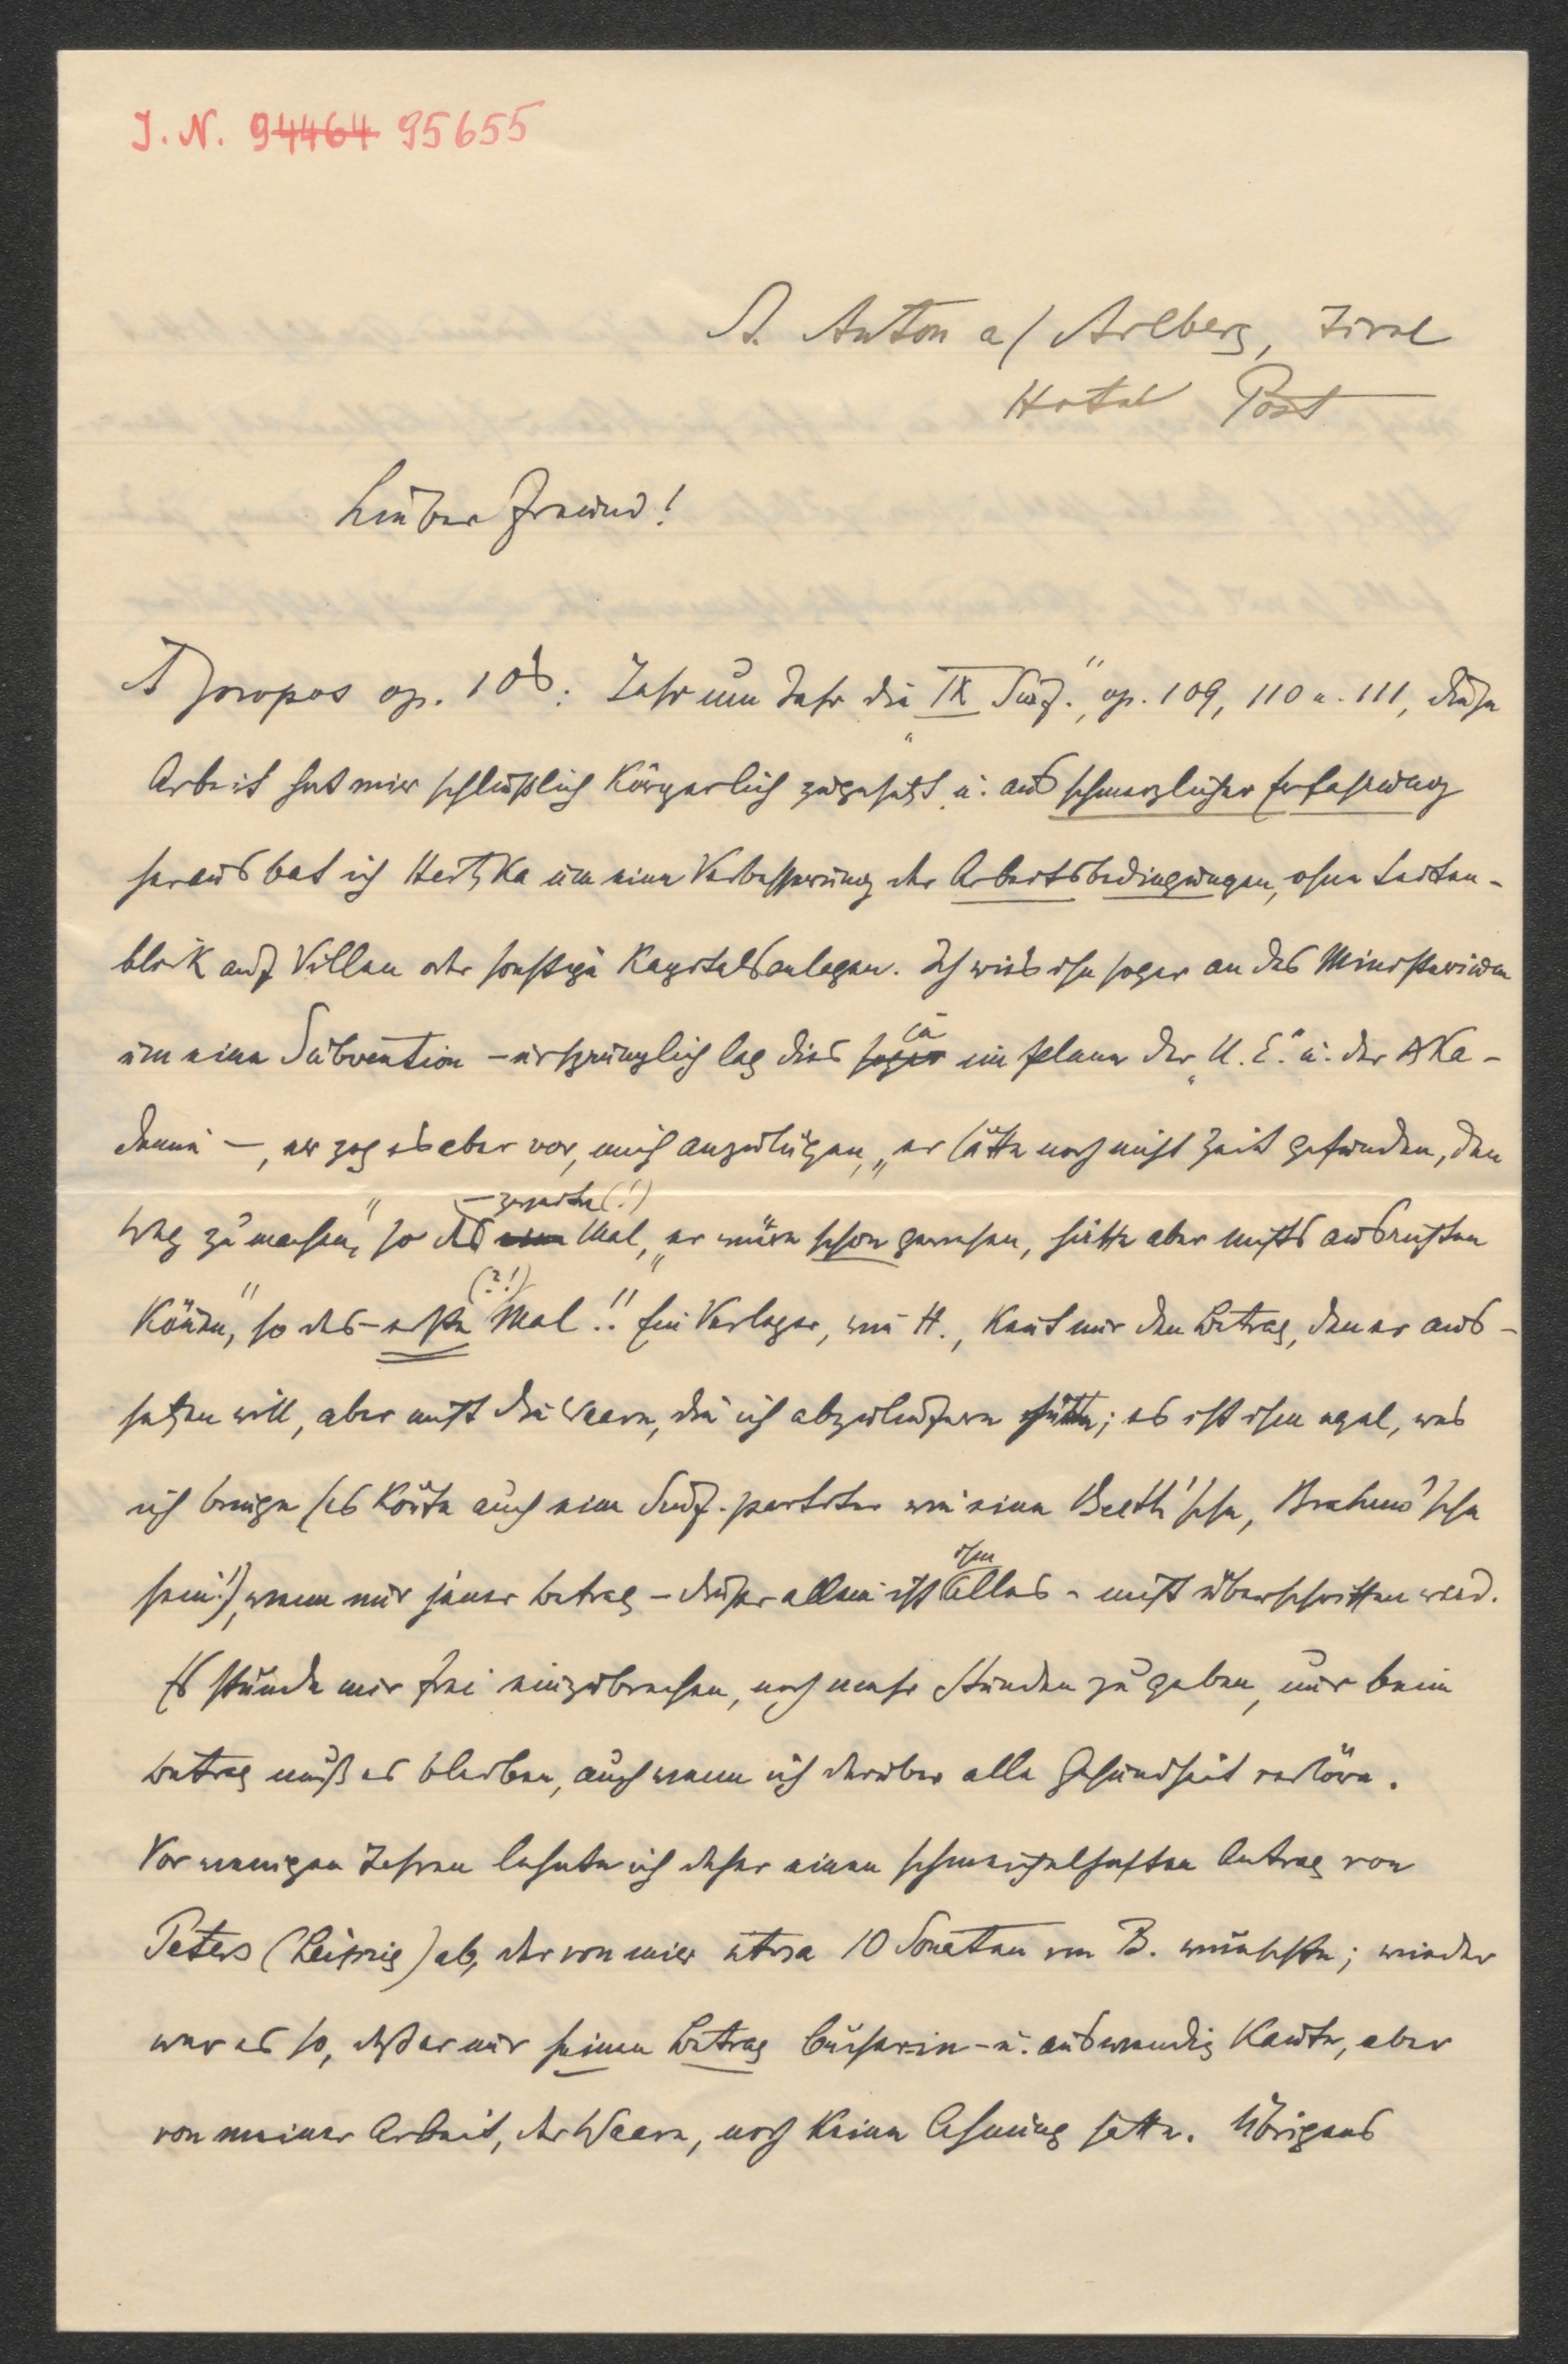 J. N. 94464 95655
St. Anton a/Arlberg, Tirol
Hotel Post
Lieber Freund!
A propos op. 106: Jahr um Jahr die „IX Sinf.“, op. 109, 110 u. 111, diese
Arbeit hat mir schließlich körperlich zugesetzt u. aus schmerzlicher Erfahrung
heraus bat ich Hertzka um eine Verbesserung der Arbeitsbedingungen, ohne Seiten-
blick auf Villen oder sonstige Kapitalsanlagen. Ich wies ihn sogar an das Ministerium
um eine Subvention – ursprünglich lag dies sogar ja im Plane der „U. E.“ u. der Aka-
demie –, er zog es aber vor, mich anzulügen, „er hätte noch nicht Zeit gefunden, den
Weg zu machen,“ so das eine – zweite (!) Mal, „er wäre schon gewesen, hätte aber nichts ausrichten
können,“ so das – erste (?!) Mal!! Ein Verleger, wie H., kennt nur den Betrag, den er aus-
setzen will, aber nicht die Waare, die ich abzuliefern hätte; es ist ihm egal, was
ich bringe (es könnte auch eine Sinf.-partitur wie eine Beeth'sche, Brahms'sche
sein!), wenn nur jener Betrag – dieser allein ist ihm Alles – nicht überschritten wird.
Es stünde mir frei einzubrechen, noch mehr Stunden zu geben, nur beim
Betrag muß es bleiben, auch wenn ich darüber alle Gesundheit verlöre.
Vor wenigen Jahren lehnte ich daher einen schmeichelhaften Antrag von
Peters (Leipzig) ab, der von mir etwa 10 Sonaten von B. wünschte; wieder
war es so, daß er nur seinen Betrag bücherin- u. auswendig kannte, aber
von meiner Arbeit, der Waare, noch keine Ahnung hatte. Übrigens